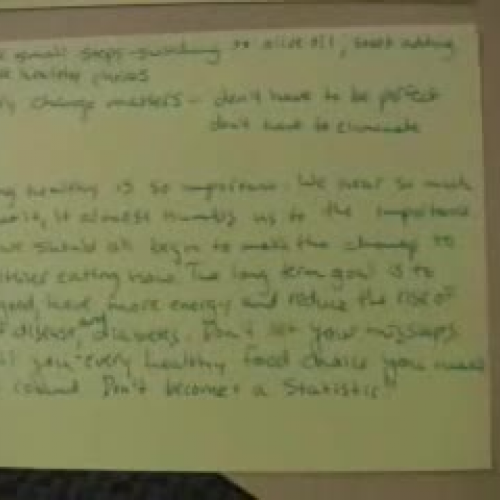 small steps - switching to olive oil, start adding
healthy choices
change matters - don't have to be perfect
don't have to eliminate
healthy is so important. We hear so much
it, it almost numbs us to the importance
we should all begin to make the change to
eating now. The long term goal is to
good, have more energy and reduce the rise of
disease, and diabetes. Don't let your missteps
you - every healthy food choice you make
Don't become a Statistic"